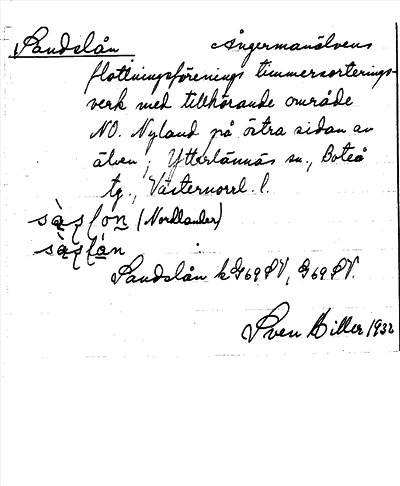 Sandslån Ångermanälvens
flottningsförenings timmersorterings-
verk med tillhörande område
NO. Nyland på östra sidan av
älven; Ytterlännäs sn., Boteå
tg., Västernorrl. l.
(Nordlander)
Sandslån k G69SV, G69SV.
Sven Biller 1932